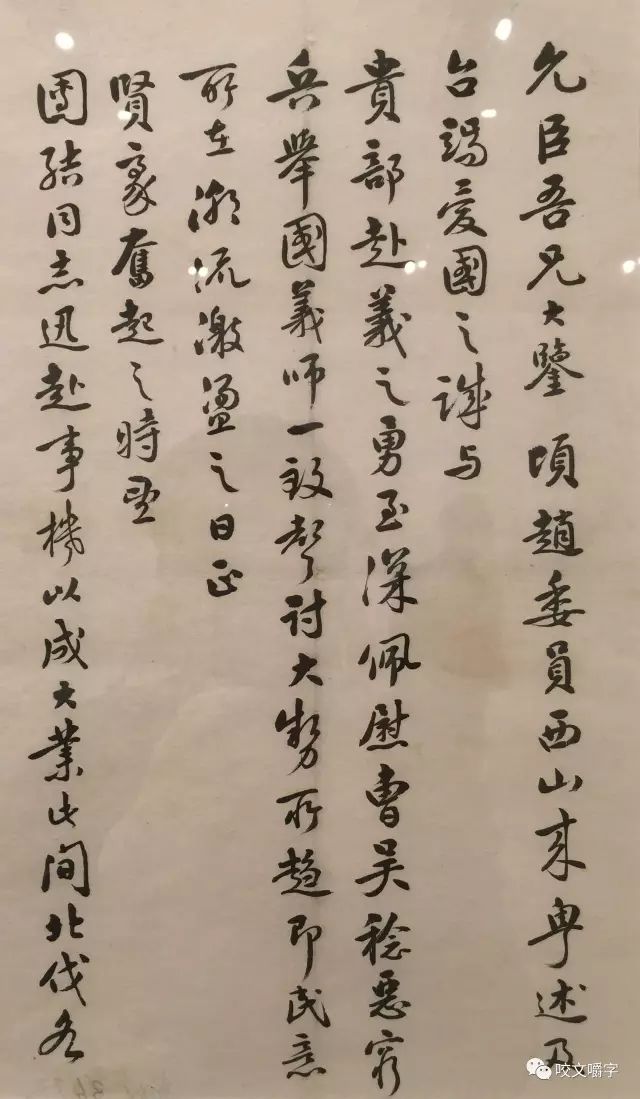 允臣吾兄大鑒頃趙委員西山來粵述及
台端愛國之誠与
貴部赴義之勇至深佩慰曹吳稔惡窮
兵舉國義師一致聲討大勢所趨即民意
所在潮流激盪之日正
賢豪奮起之時望
團結同志迅赴事機以成大業此間北伐各
咬文嚼字